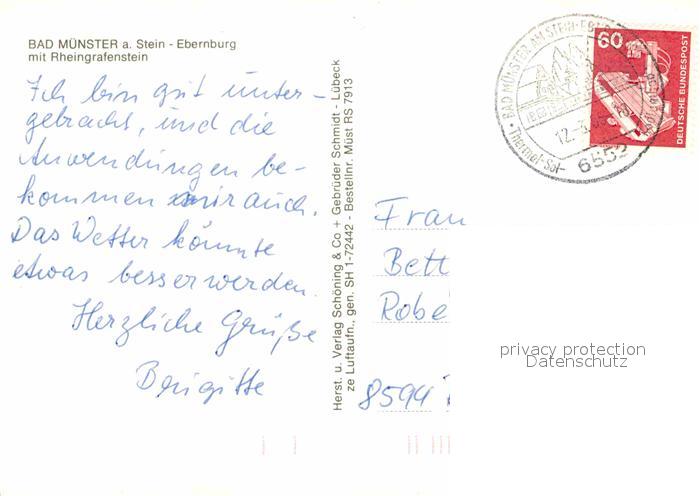 BAD MÜNSTER a. Stein - Ebernburg
mit Rheingrafenstein
Ich bin gut unter-
gebracht, und die
Anwendungen be-
kommen mir auch.
Das Wetter könnte
etwas besser werden.
Herzliche Grüße
Brigitte
Herst. u. Verlag Schöning & Co + Gebrüder Schmidt - Lübeck
ze Luftaufn., gen. SH 1-72442 - Bestellnr. Müst RS 7913
BAD MÜNSTER AM STEIN-
Thermal-Sol-
6552
60
DEUTSCHE BUNDESPOST
Frau
Bett
Robe
8594
privacy protection
Datenschutz